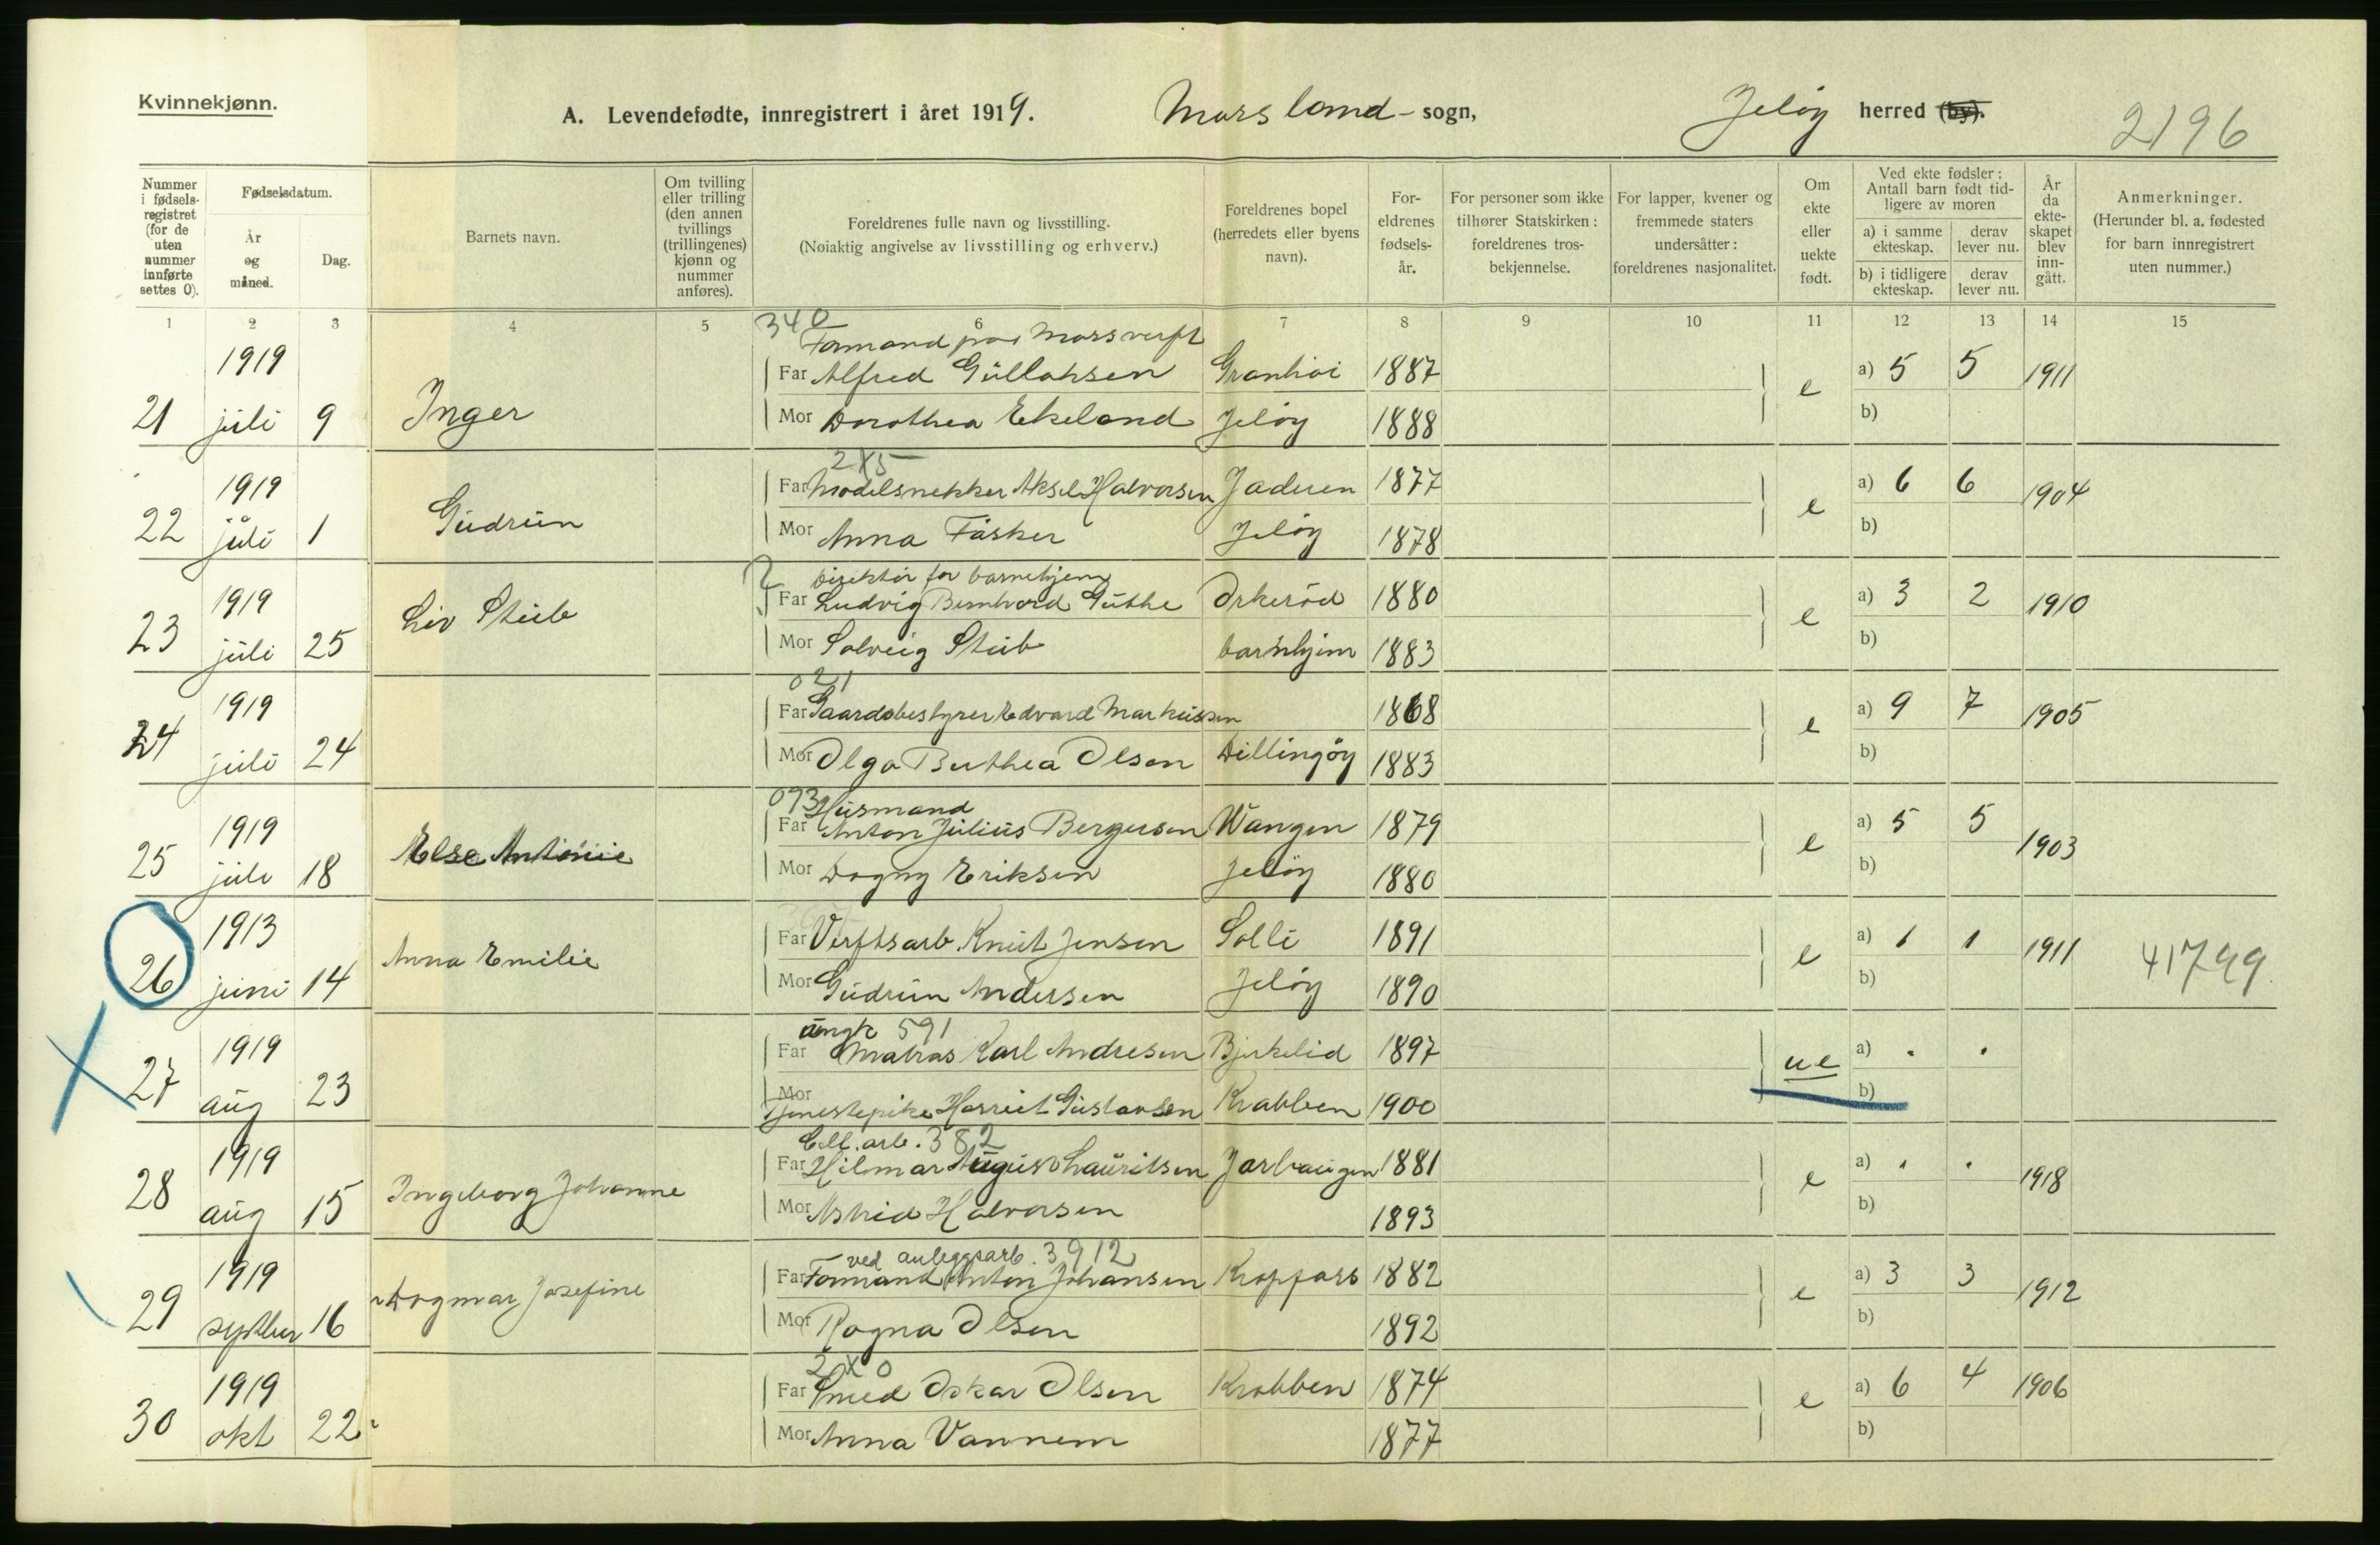 Kvinnekjønn.
A. Levendefødte, innregistrert i året 1919. Mossland - sogn, Jeløy herred (by). 2196
Nummer i fødselsregistret (for de uten nummer innførte settes 0).
Fødselsdatum.
År og måned.
Dag.
Barnets navn.
Om tvilling eller trilling (den annen tvillings (trillingenes) kjønn og nummer anføres).
Foreldrenes fulle navn og livsstilling.
(Nøiaktig angivelse av livsstilling og erhverv.)
Foreldrenes bopel (herredets eller byens navn).
Foreldrenes fødselsår.
For personer som ikke tilhører Statskirken: foreldrenes trosbekjennelse.
For lapper, kvener og fremmede staters undersåtter: foreldrenes nasjonalitet.
Om ekte eller uekte født.
Ved ekte fødsler: Antall barn født tidligere av moren
a) i samme ekteskap. derav lever nu.
b) i tidligere ekteskap. derav lever nu.
År da ekteskapet blev inngått.
Anmerkninger.
(Herunder bl. a. fødested for barn innregistrert uten nummer.)
1 2 3 4 5 6 7 8 9 10 11 12 13 14 15
340
Formand på Moss verft
1919 Far Alfred Gulluhsen Granhøi 1887 e a) 5 5 1911
21 juli 9 Inger Mor Dorothea Ekeland Jeløy 1888 b)
2X5
1919 Far Modelsnekker Aksel Halvorsen Jaderen 1877 e a) 6 6 1904
22 juli 1 Gudrun Mor Anna Fasker Jeløy 1878 b)
Direktør for barnehjem
1919 Liv Stub Far Ludvig Bernhard Guthe Orkerød 1880 e a) 3 2 1910
23 juli 25 Mor Solveig Stub barnhjem 1883 b)
021
1919 Far Gaardsbestyrer Edvard Markussen 1868 e a) 9 7 1905
24 juli 24 Mor Olga Berthea Olsen Dillingøy 1883 b)
073 Husmand
1919 Far Anton Julius Bergersen Wangen 1879 e a) 5 5 1903
25 juli 18 Else Antonie Mor Dagny Eriksen Jeløy 1880 b)
1913 Far Verftsarb. Knut Jensen Solli 1891 e a) 1 1 1911 41799
26 juni 14 Anna Emilie Mor Gudrun Andersen Jeløy 1890 b)
ungk 591
1919 Far Matros Karl Andresen Bjerkelid 1897 ue a) . .
27 aug 23 Mor Tjenestepike Harriet Gustavsen Krabben 1900 b)
Cell. arb. 382
1919 Far Hilmar August Lauritsen Jarhaugen 1881 e a) . . 1918
28 aug 15 Ingeborg Johanne Mor Astrid Halvorsen 1893 b)
ved anleggsarb. 3912
1919 Far Formand Anton Johansen Kroppass 1882 e a) 3 3 1912
29 septber 16 Dagmar Josefine Mor Ragna Olsen 1892 b)
2X0
1919 Far Smed Oskar Olsen Krabben 1874 e a) 6 4 1906
30 okt 22 Mor Anna Vannem 1877 b)